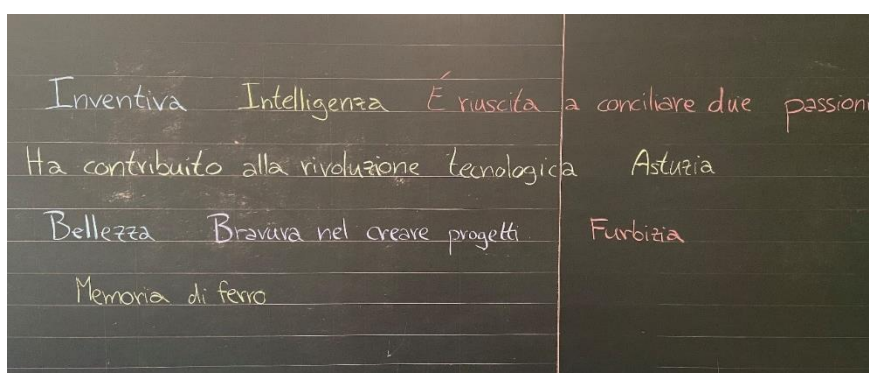 Inventiva Intelligenza É riuscita a conciliare due passioni
Ha contribuito alla rivoluzione tecnologica Astuzia
Bellezza Bravura nel creare progetti Furbizia
Memoria di ferro